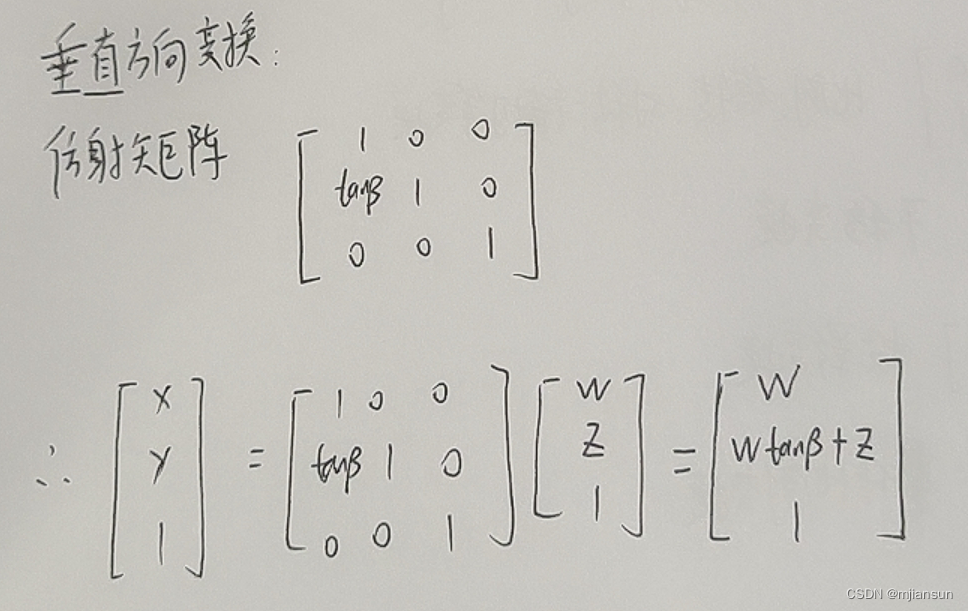 垂直方向变换:
仿射矩阵 [ 1 0 0
tanβ 1 0
0 0 1 ]
∴ [ x y 1 ] = [ 1 0 0 tanβ 1 0 0 0 1 ] [ w z 1 ] = [ w w tanβ + z 1 ]
CSDN @mjiansun